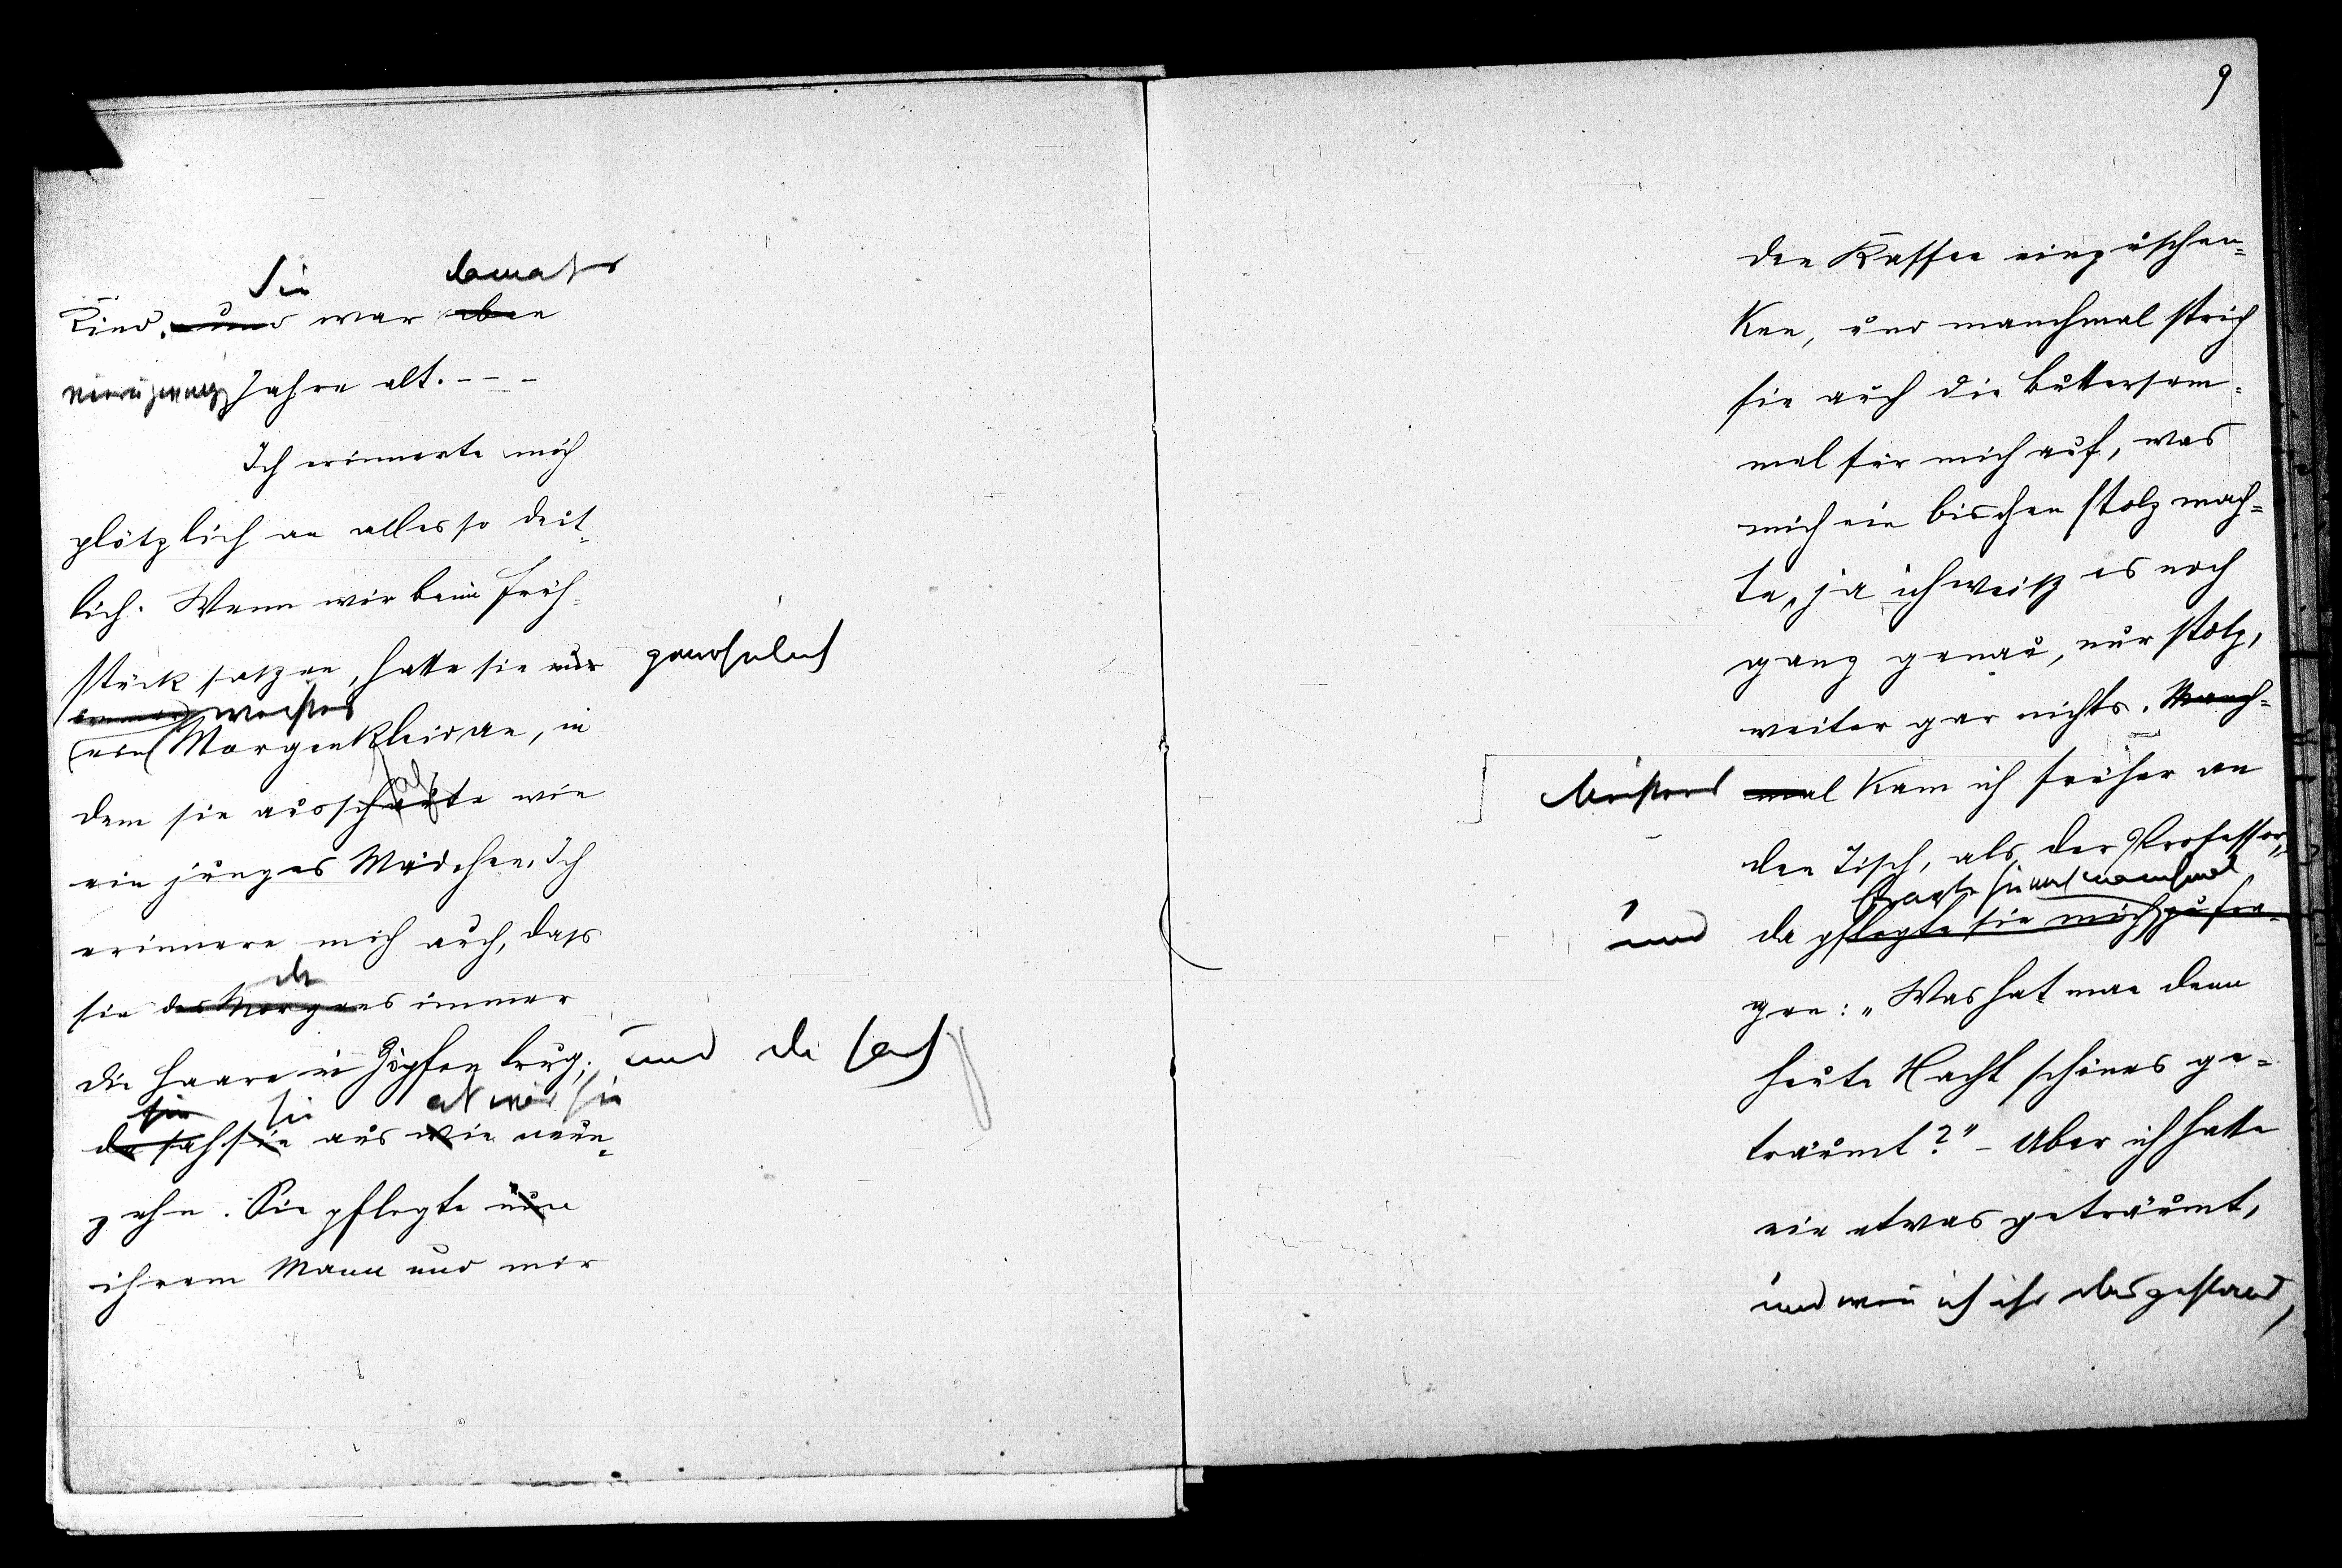 Sie damals
Kind, und war eben
neunzehn Jahre alt. - - -
Ich erinnerte mich
plötzlich an alles so deut-
lich. Wenn wir beim Früh-
stück saszen, hatte sie nur gewöhnlich
weisses
ein Morgenkleid an, in
dem sie ausschaute wie
ein junges Mädchen. Ich
erinnere mich auch, dass
da
sie des Morgens immer
die Haare in Zöpfen trug; und da sah
sie sie als wär sie
da sah sie aus wie neun-
zehn. Sie pflegte nun
ihrem Mann und mir
9
den Kaffee einzuschen-
ken, und manchmal strich
sie auch die Buttersem-
mel für mich auf, was
mich ein bischen stolz mach-
te, ja ich weisz es noch
ganz genau, nur stolz,
weiter gar nichts. Manch-
Meistens mal kam ich früher an
den Tisch, als der Professor,
fragte sie mich manchmal
und da pflegte sie mich zu fra-
gen: „Was hat man denn
heute Nacht schönes ge-
träumt?" - Aber ich hatte
nie etwas geträumt,
und wenn ich ihr das gestand,